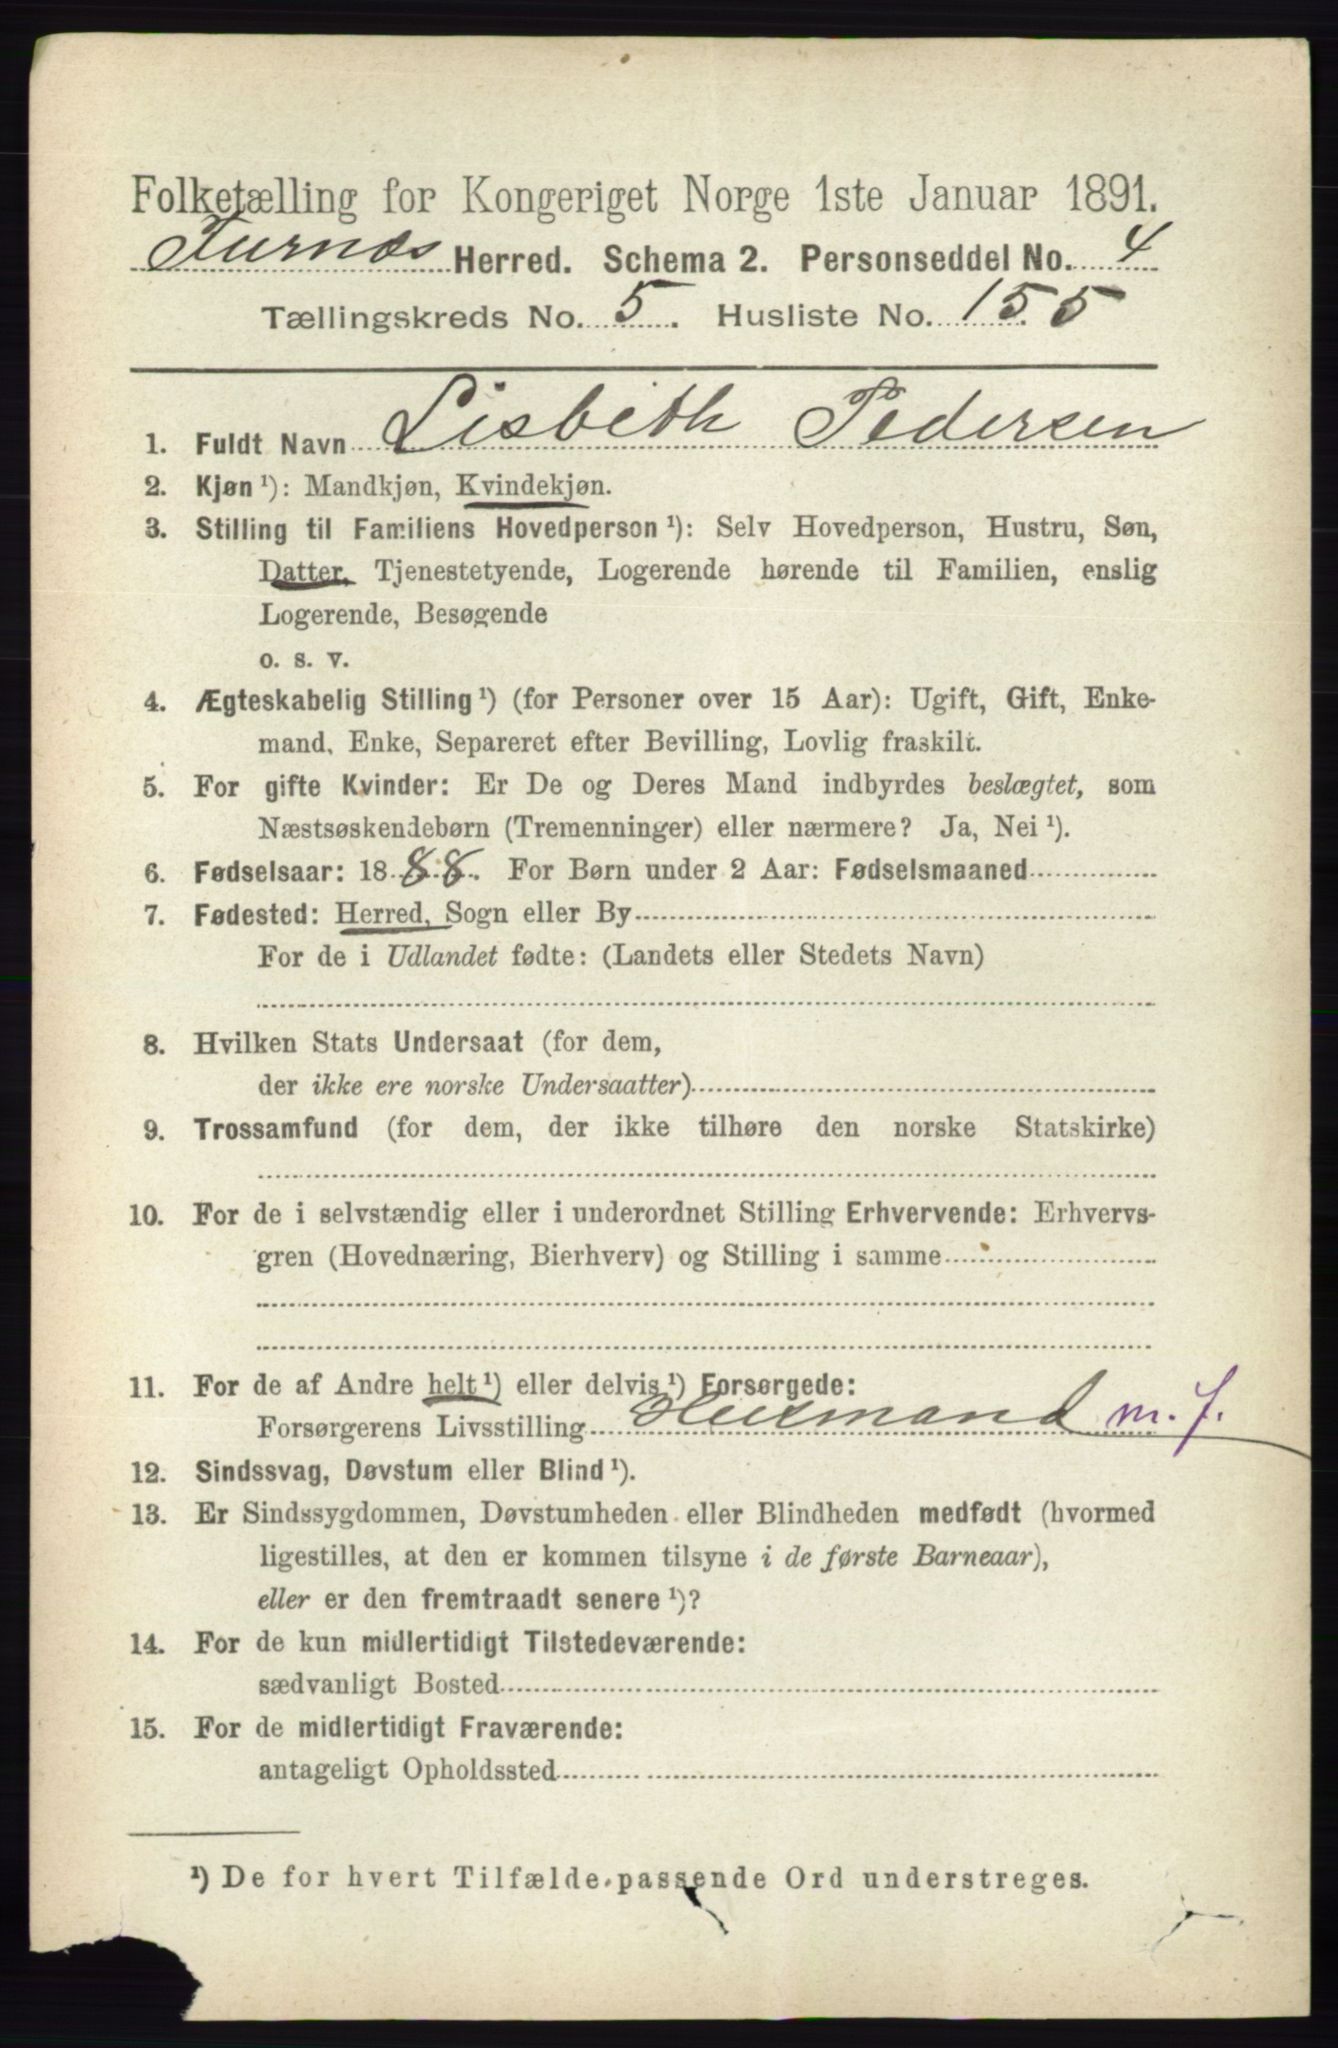 Folketælling for Kongeriget Norge 1ste Januar 1891.
Furnæs Herred. Schema 2. Personseddel No. 4
Tællingskreds No. 5. Husliste No. 155
1. Fuldt Navn Lisbeth Pedersen
2. Kjøn ¹): Mandkjøn, Kvindekjøn.
3. Stilling til Familiens Hovedperson ¹): Selv Hovedperson, Hustru, Søn,
Datter, Tjenestetyende, Logerende hørende til Familien, enslig
Logerende, Besøgende
o. s. v.
4. Ægteskabelig Stilling ¹) (for Personer over 15 Aar): Ugift, Gift, Enke-
mand, Enke, Separeret efter Bevilling, Lovlig fraskilt.
5. For gifte Kvinder: Er De og Deres Mand indbyrdes beslægtet, som
Næstsøskendebørn (Tremenninger) eller nærmere? Ja, Nei ¹).
6. Fødselsaar: 1888. For Børn under 2 Aar: Fødselsmaaned
7. Fødested: Herred, Sogn eller By
For de i Udlandet fødte: (Landets eller Stedets Navn)
8. Hvilken Stats Undersaat (for dem,
der ikke ere norske Undersaatter)
9. Trossamfund (for dem, der ikke tilhøre den norske Statskirke)
10. For de i selvstændig eller i underordnet Stilling Erhvervende: Erhvervs-
gren (Hovednæring, Bierhverv) og Stilling i samme
11. For de af Andre helt ¹) eller delvis ¹) Forsørgede:
Forsørgerens Livsstilling Husmand m. J.
12. Sindssvag, Døvstum eller Blind ¹).
13. Er Sindssygdommen, Døvstumheden eller Blindheden medfødt (hvormed
ligestilles, at den er kommen tilsyne i de første Barneaar),
eller er den fremtraadt senere ¹)?
14. For de kun midlertidigt Tilstedeværende:
sædvanligt Bosted
15. For de midlertidigt Fraværende:
antageligt Opholdssted
¹) De for hvert Tilfælde passende Ord understreges.